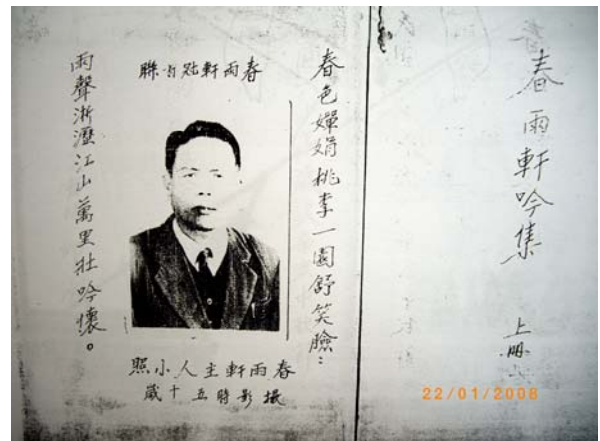 春雨軒吟集
上冊
春色嬋娟桃李一園舒笑臉：
春雨軒 聯
雨聲淅瀝江山萬里壯吟懷。
春雨軒主人小照
攝影時五十歲
22/01/2008